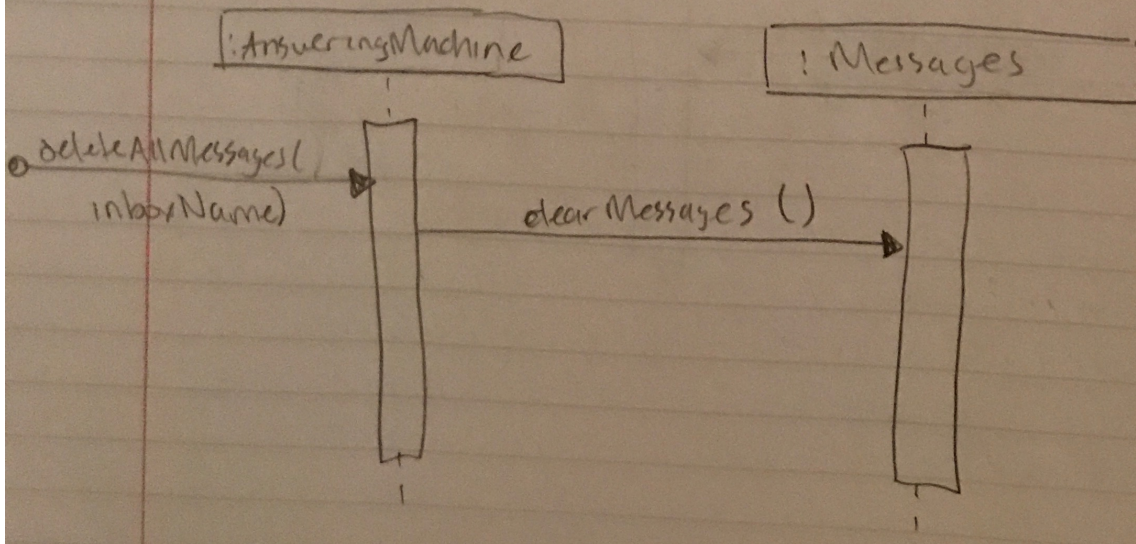 :AnsweringMachine
: Messages
deleteAllMessages(
inboxName)
clearMessages ()